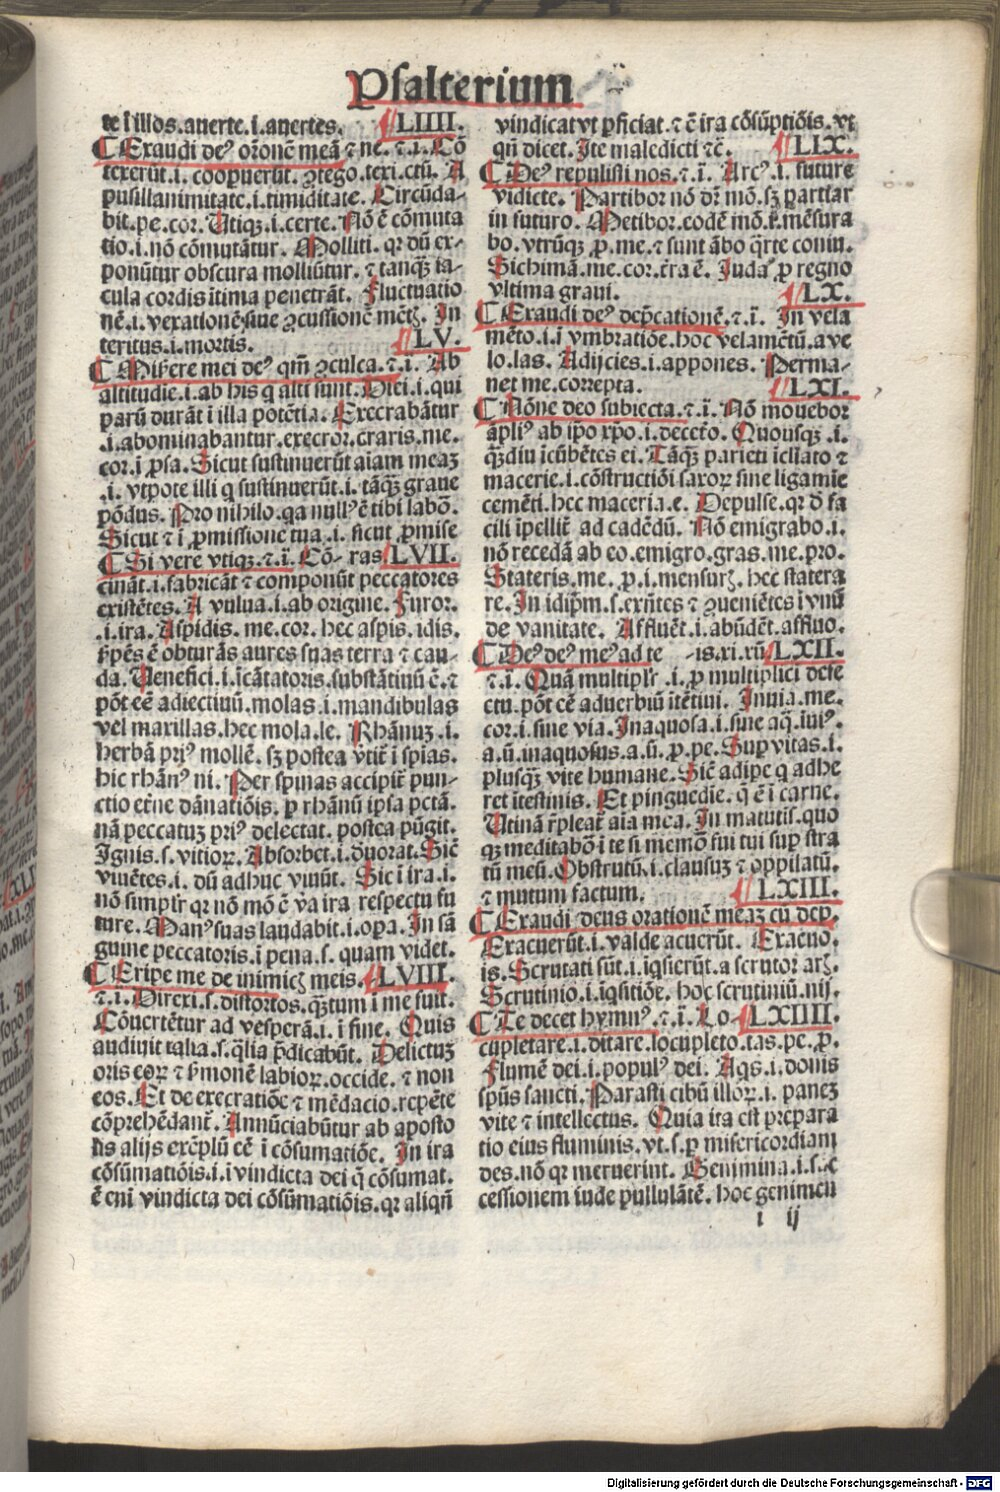 Psalterium
te ī illos. auerte. i. auertes. LIIII.
Exaudi deꝰ or̄onē meā ⁊ ne. ⁊. i. Cō
texerūt. i. cooꝑuerūt. ꝯtego. texi. ctū. A
pusillanimitate. i. timiditate. Circūda-
bit. pe. cor. Utiqꝫ. i. certe. Nō ē cōmuta
tio. i. nō cōmutātur. Molliti. qr dū ex-
ponūtur obscura molliūtur. ⁊ tanqꝫ ia-
cula cordis ītima penetrāt. Fluctuatio
nē. i. vexationē. siue ꝯcussionē mētꝭ. In
teritus. i. mortis. LV.
Miserere mei deꝰ qm̄ ꝯculca. ⁊. ī. Ab
altitudie. i. ab his q alti sunt. Diei. i. qui
parū durāt ī illa potētia. Execrabātur
.i. abominabantur. execror. craris. me.
cor. i ꝓsa. Sicut sustinuerūt aiam meaꝫ
.i. vtpote illi q sustinuerūt. i. tāqꝫ graue
pōdus. Pro nihilo. qa nullꝰ ē tibi labō.
Sicut ⁊ ī ꝓmissione tua. i. sicut ꝓmise
Si vere vtiqꝫ. ⁊. ī. Cō- ras LVII.
cināt. i. fabricāt ⁊ componūt peccatores
existētes. A vulua. i. ab origine. Furor.
.i. ira. Aspidis. me. cor. hec aspis. idis.
ẜpēs ē obturās aures suas terra ⁊ cau-
da. Uenefici. i. īcātatoris. substātinū ē. ⁊
pōt eē adiectiuū. molas. i. mandibulas
vel maxillas. hec mola. le. Rhānuꝫ. i.
herbā priꝰ mollē. sꝫ postea v̄tit̄ ī spias.
hic rhānꝰ ni. Per spinas accipit̄ pun-
ctio et̄ne dānatiōis. ꝑ rhānū ipsa pctā.
nā peccatuꝫ priꝰ delectat. postea pūgit.
Ignis. s. vitioꝝ. Absorbet. i. duorat. Sic̄
viuētes. i. dū adhuc viuūt. Sic i ira. i.
nō simplr̄ qr nō mō ē v̄a ira respectu fu
ture. Manꝰ suas laudabit. i. opa. In sā
guine peccatoris. i pena. s. quam videt.
Eripe me de inimicꝭ meis. LVIII.
⁊. i. Direxi. s. distortos. qꝫtum i me fuit.
Cōuertētur ad vesperā. i. ī fine. Quis
audiuit talia. s. q̄lia p̄dicabūt. Delictuꝫ
oris eoꝝ ⁊ ẜmonē labioꝝ. occide. ⁊ non
eos. Et de execratiōe ⁊ mēdacio. repēte
cōprehēdant̄. Annūciabūtur ab aposto
lis alijs exēplū eē ī cōsumatiōe. In ira
cōsūmatiōis. i. i vindicta dei q̄ cōsumat.
ē eni vindicta dei cōsūmatiōis. qr aliqn̄
vindicat vt ꝓficiat. ⁊ ē ira cōsūptiōis. vt
qn̄ dicet. Ite maledicti ⁊c̄. LIX.
Deꝰ repulisti nos. ⁊. i. Arcꝰ. i. future
vidicte. Partibor nō dr̄ mō. sꝫ partiar
in futuro. Metibor. codē mō. i. mēsura
bo. vtrūqꝫ ꝓ. me. ⁊ sunt ābo q̄rte coniu.
Sichimā. me. cor. t̄ra ē. Iuda. ꝓ regno
vltima graui. LX.
Exaudi deꝰ dep̄cationē. ⁊. ī. In vela
mēto. i. i vmbratiōe. hoc velamētū. a ve
lo. las. Adijcies. i. appones. Perma-
net me. correpta. LXI.
Nōne deo subiecta. ⁊. ī. Nō mouebor
apliꝰ ab ip̄o xp̄o. i. decet̄o. Quousqꝫ. i.
qꝫdiu icūbētes ei. Tāqꝫ parieti iclīato ⁊
macerie. i. cōstructiōi saxoꝝ sine ligamie
cemēti. hec maceria. e. Depulse. qr d̄ fa
cili īpellit̄ ad cadēdū. Nō emigrabo. i.
nō recedā ab eo. emigro. gras. me. pro.
Stateris. me. ꝓ. i. mensurꝭ. hec statera
re. In idip̄m. s. exn̄tes ⁊ ꝯueniētes ī vnū
de vanitate. Affluēt. i. abūdēt. affluo.
Deꝰ deꝰ meꝰ ad te -is. xi. xū LXII.
⁊. ī. Quā multiplr̄. i. ꝓ multiplici defe
ctu. pōt eē aduerbiū itētiui. Inuia. me.
cor. i. sine via. Inaquosa. i. sine aq̄. īuiꝰ.
a. ū. inaquosus. a. ū. ꝓ. pe. Suꝑ vitas. i.
plusqꝫ vite humane. Sic̄ adipe q̄ adhe
ret itestinis. Et pinguedie. q̄ ē ī carne.
Utinā r̄pleat̄ aīa mea. In matutīs. quo
qꝫ meditabō i te si memō fui tui suꝑ stra
tū meū. Obstrutū. i. clausuꝫ ⁊ oppilatū.
⁊ mutum factum. LXIII.
Exaudi deus orationē meaꝫ cū dep.
Exacuerūt. i. valde acuerūt. Exacuo.
is. Scrutati sūt. i. iq̄sierūt. a scrutor arꝭ.
Scrutinio. i. īq̄sitiōe. hoc scrutiniū. nij.
Te decet hymnꝰ. ⁊. ī. Lo- LXIIII.
cupletare. i. ditare. locupleto. tas. pe. ꝓ.
Flumē dei. i. populꝰ dei. Aq̄s. i. donis
spūs sancti. Parasti cibū illoꝝ. i. paneꝫ
vite ⁊ intellectus. Quia ita est prepara
tio eius fluminis. vt. s. ꝑ misericordiam
des. nō qr meruerint. Genimina. i. suc
cessionem īude pullulātē. hoc genimen
i ij
Digitalisierung gefördert durch die Deutsche Forschungsgemeinschaft - DFG